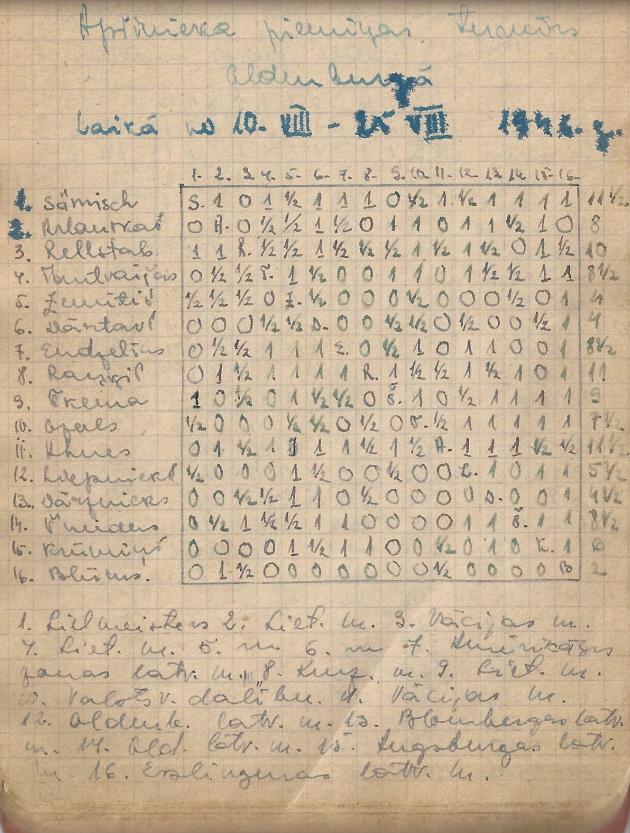 Apšenieka piemiņas turnīrs
Oldenburgā
laikā no 10. VIII - 25 VIII 1946. g.
1. 2. 3. 4. 5. 6. 7. 8. 9. 10. 11. 12. 13. 14. 15. 16.
1. Sämisch S. 1 0 1 ½ 1 1 1 0 ½ 1 ½ 1 1 1 1 11 ½
2. 0 A. 0 ½ ½ 1 ½ 0 1 1 0 1 1 ½ 1 0 8
3. Rellstab 1 1 R. ½ ½ 1 ½ ½ ½ 1 ½ 1 ½ 0 1 ½ 10
4. 0 ½ ½ T. 1 ½ 0 0 1 1 0 1 ½ ½ 1 1 8½
5. Zemitis ½ ½ ½ 0 Z. ½ 0 0 0 ½ 0 0 0 ½ 0 1 4
6. 0 0 0 ½ ½ D. 0 0 ½ ½ 0 ½ 0 0 ½ 1 4
7. Endzelins 0 ½ ½ 1 1 1 E. 0 ½ 1 0 1 1 0 0 1 8½
8. 0 1 ½ 1 1 1 1 R. 1 ½ ½ 1 ½ 1 0 1 11
9. 1 0 ½ 0 1 ½ ½ 0 1 0 ½ 1 1 1 1 9
10. Ozols ½ 0 0 0 ½ ½ 0 ½ 0 O. ½ 1 1 1 1 1 7½
11. 0 1 ½ 1 1 1 1 ½ 1 ½ 1 1 1 ½ ½ 11½
12. Liepnieks ½ 0 0 0 1 ½ 0 0 ½ 0 0 L. 1 0 1 1 5½
13. Dārznieks 0 0 ½ ½ 1 1 0 ½ 0 0 0 0 D. 0 0 1 4½
14. 0 ½ 1 ½ ½ 1 1 0 0 0 0 1 1 Š. 1 1 8½
15. Krūmiņš 0 0 0 0 1 ½ 1 1 0 0 ½ 0 1 0 K. 1 6
16. Blūms. 0 1 ½ 0 0 0 0 0 0 0 ½ 0 0 0 0 B 2
1. Lielmeisters 2. Liet. m. 3. Vācijas m.
4. Liet. m. 5. m. 6. m 7. Amērikāņu
zonas latv. m. 8. m. 9. Liet. m.
10. Valstsv. dalībn. 11. Vācijas m.
12. Oldenb. latv. m. 13. Blombergas latv.
m. 14. Old. latv. m. 15. Augsburgas latv.
m. 16. Eslingenas latv. m.